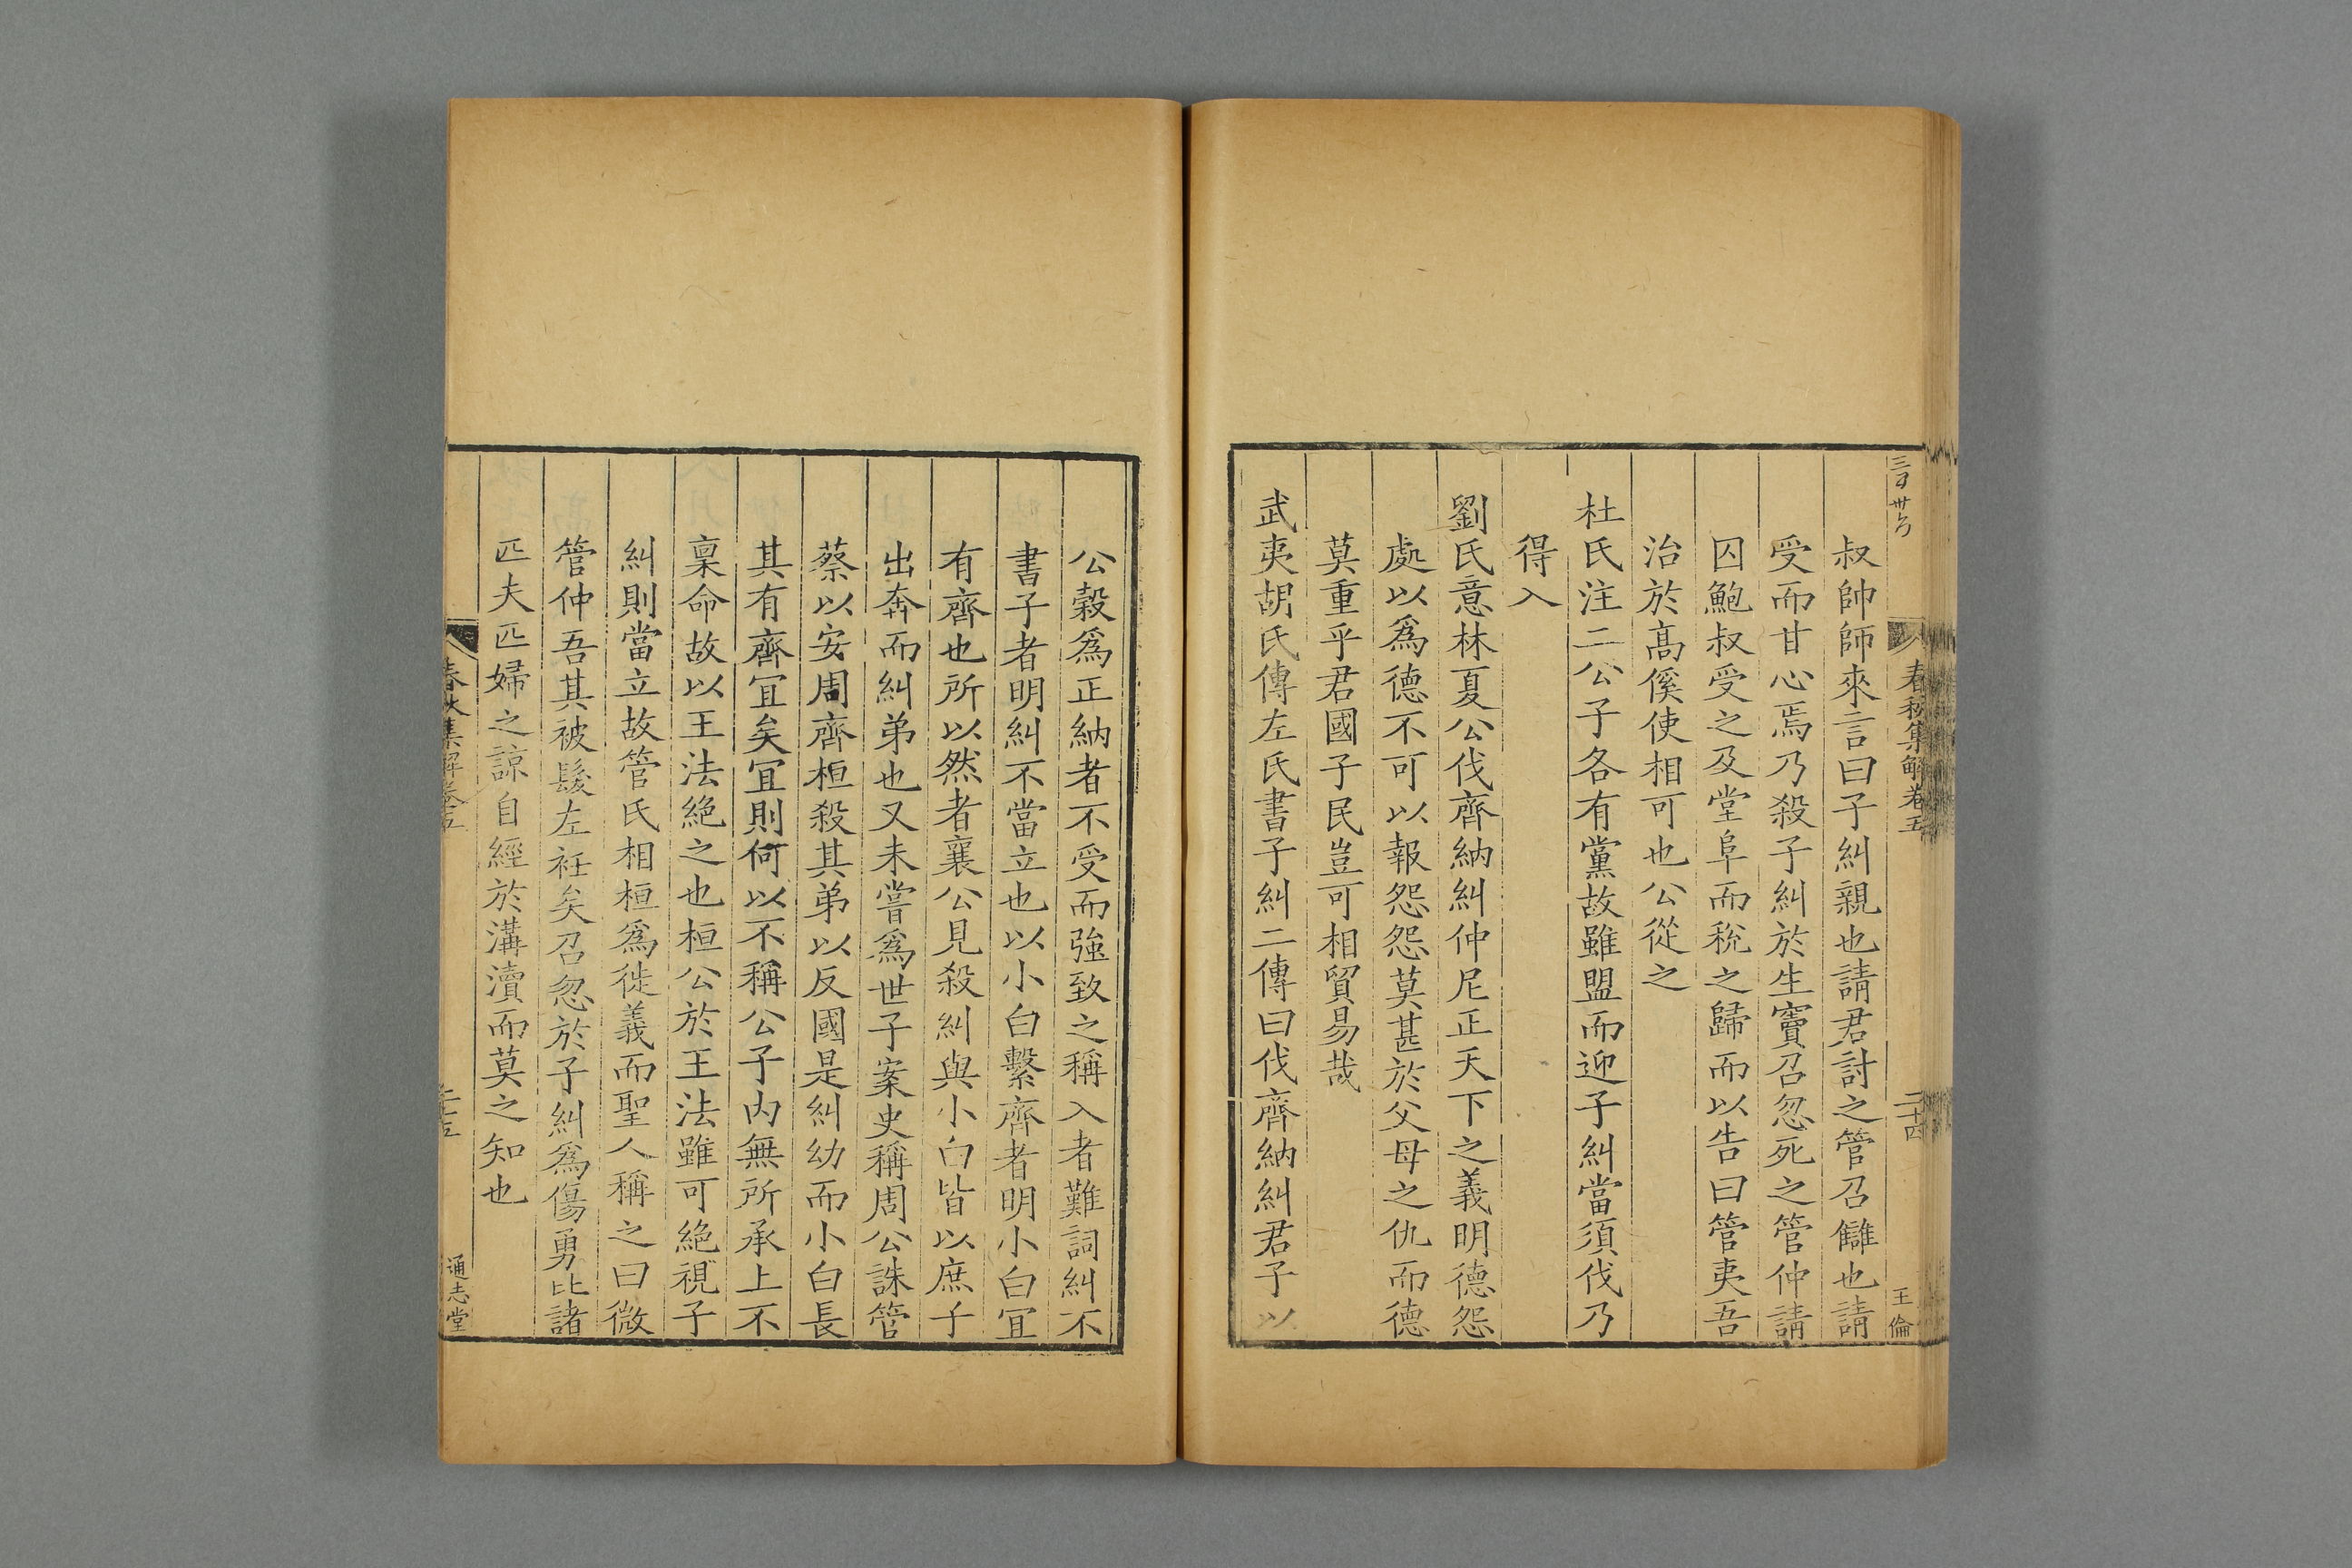 春秋集解卷五
二十四
王倫
叔帥師來言曰子糾親也請君討之管召讎也請
受而甘心焉乃殺子糾於生竇召忽死之管仲請
囚鮑叔受之及堂阜而稅之歸而以告曰管夷吾
治於高傒使相可也公從之
杜氏注二公子各有黨故雖盟而迎子糾當須伐乃
得入
劉氏意林夏公伐齊納糾仲尼正天下之義明德怨
處以爲德不可以報怨怨莫甚於父母之仇而德
莫重乎君國子民豈可相貿易哉
武夷胡氏傳左氏書子糾二傳曰伐齊納糾君子以
公穀爲正納者不受而強致之稱入者難詞糾不
書子者明糾不當立也以小白繫齊者明小白宜
有齊也所以然者襄公見殺糾與小白皆以庶子
出奔而糾弟也又未嘗爲世子案史稱周公誅管
蔡以安周齊桓殺其弟以反國是糾幼而小白長
其有齊冝矣冝則何以不稱公子内無所承上不
稟命故以王法絕之也桓公於王法雖可絕視子
糾則當立故管氏相桓爲徙義而聖人稱之曰微
管仲吾其被髮左衽矣召忽於子糾爲傷勇比諸
匹夫匹婦之諒自經於溝瀆而莫之知也
春秋集解卷五
二十五
通志堂